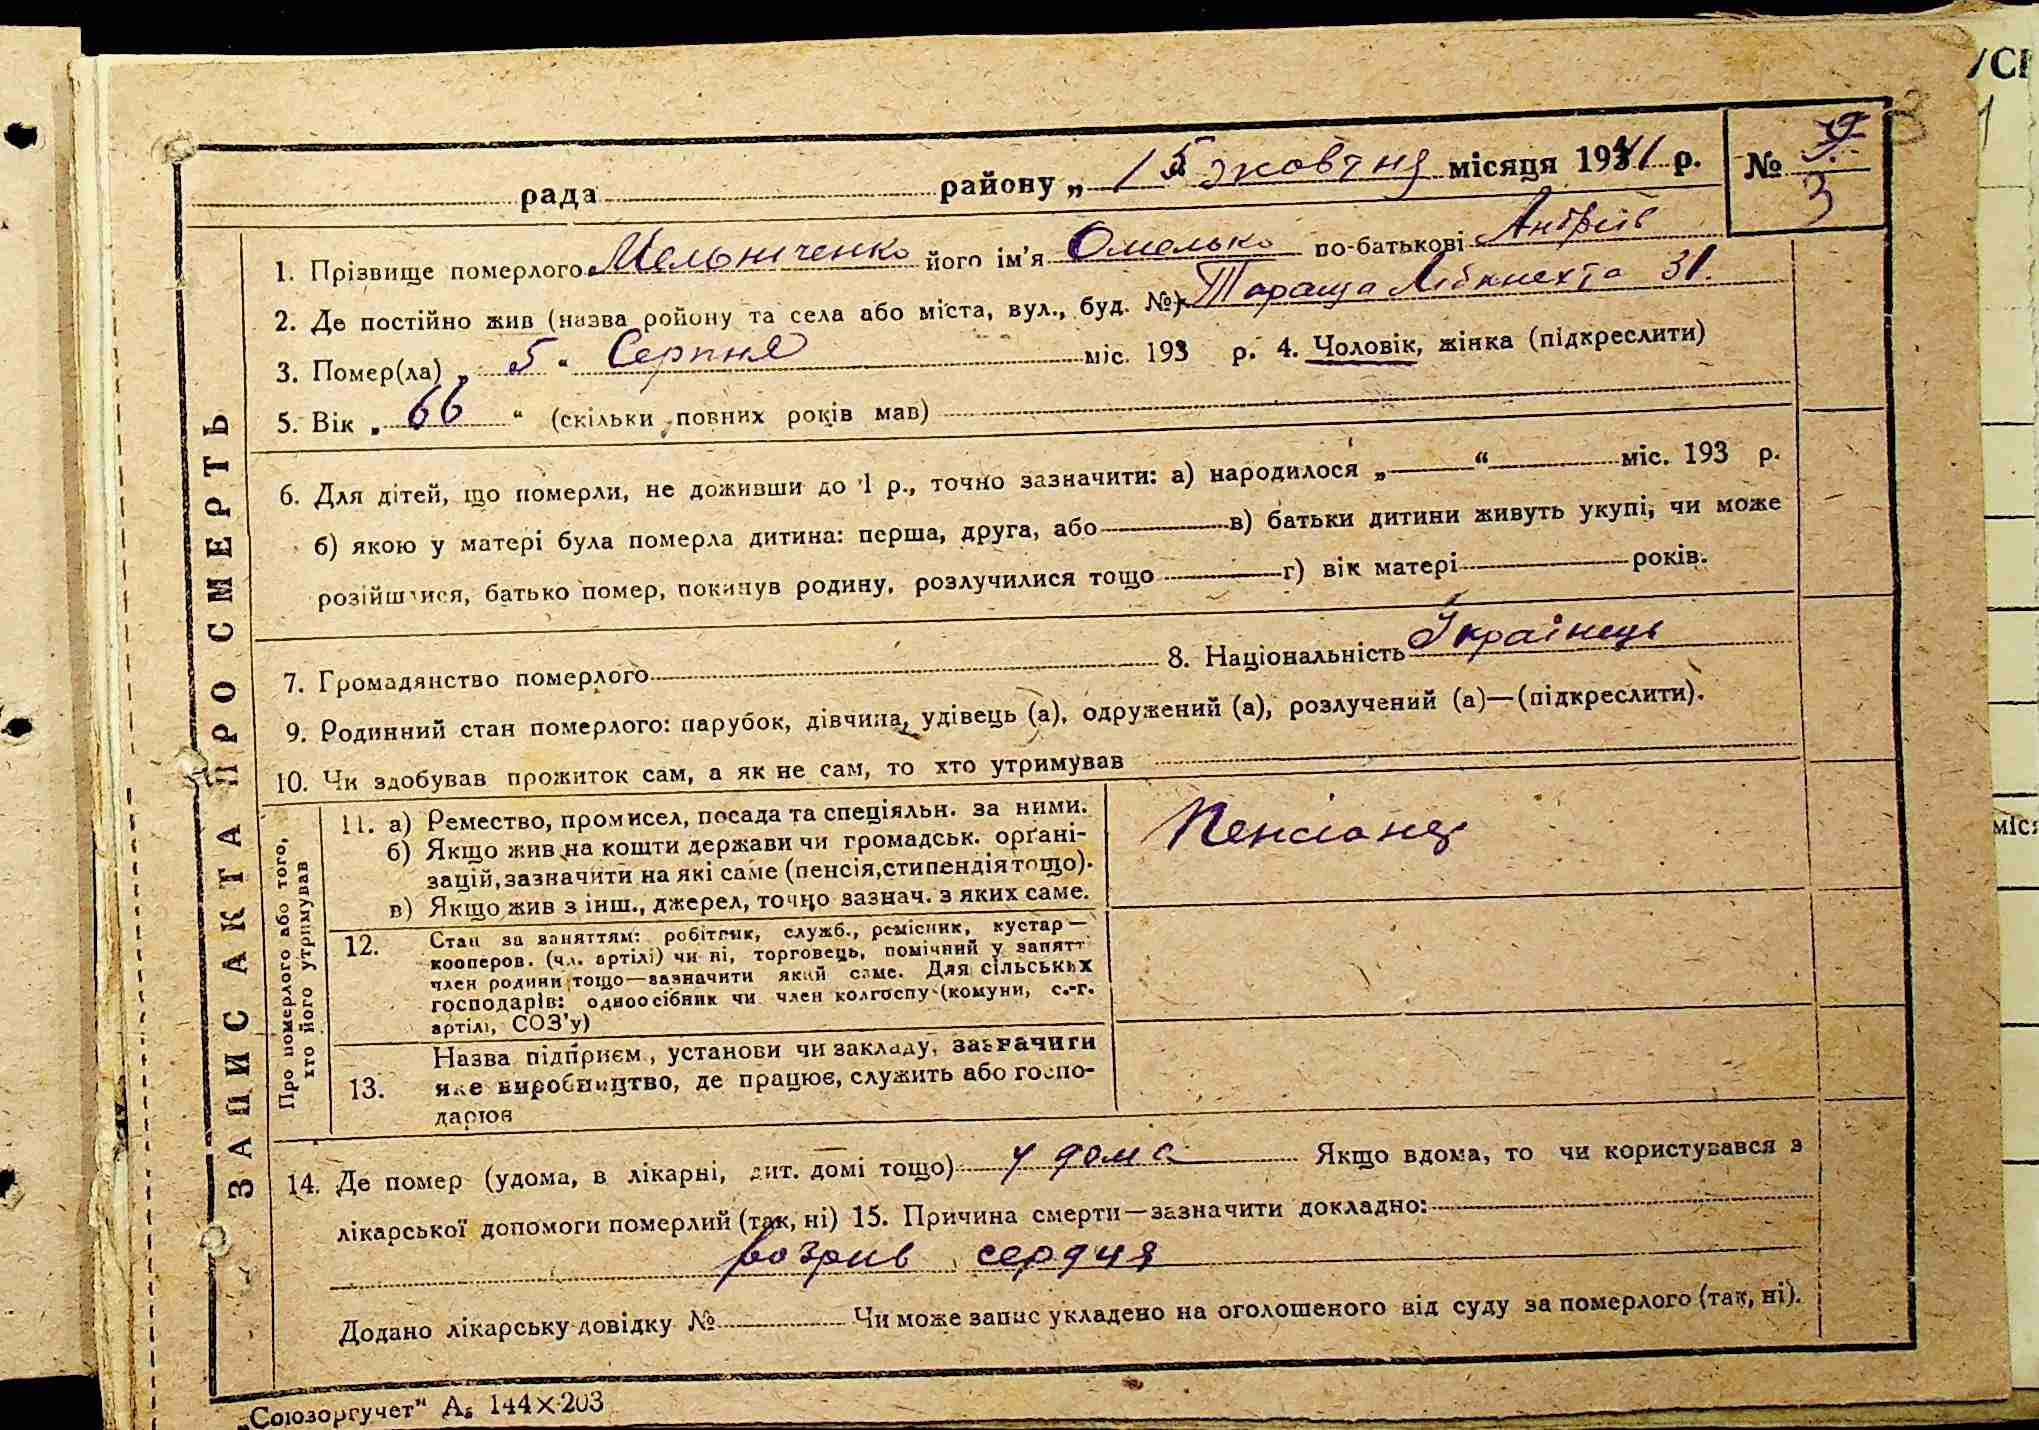 рада района „ 15 “ жовтня місяця 1941 р. № 3
1. Прізвище померлого Мельниченко його ім'я Омелько по-батькові Андріїв
2. Де постійно жив (назва району та села або міста, вул., буд. №) Тараща Лібкнехта 31.
3. Помер(ла) „ 5 “ Серпня міс. 193 р. 4. Чоловік, жінка (підкреслити)
5. Вік „ 66 “ (скільки повних років мав)
6. Для дітей, що померли, не доживши до 1 р., точно зазначити: а) народилося „ “ міс. 193 р.
б) якою у матері була померла дитина: перша, друга, або в) батьки дитини живуть укупі, чи може
розійшлися, батько помер, покинув родину, розлучилися тощо г) вік матері років.
7. Громадянство померлого 8. Національність Українець
9. Родинний стан померлого: парубок, дівчина, удівець (а), одружений (а), розлучений (а)—(підкреслити).
10. Чи здобував прожиток сам, а як не сам, то хто утримував
ЗАПИС АКТА ПРО СМЕРТЬ
Про померлого або того,
хто його утримував
11. а) Ремество, промисел, посада та спеціяльн. за ними.
б) Якщо жив на кошти держави чи громадськ. орґані-
зацій, зазначити на які саме (пенсія, стипендія тощо).
в) Якщо жив з інш., джерел, точно зазнач. з яких саме.
Пенсіонер
12. Стан за заняттям: робітник, служб., ремісник, кустар—
кооперов. (чл. артілі) чи ні, торговець, помічний у занятт
член родини тощо—зазначити який саме. Для сільських
господарів: одноосібник чи член колгоспу (комуни, с.-г.
артілі, СОЗ'у)
13. Назва підприєм., установи чи закладу, зазначити
яке виробництво, де працює, служить або госпо-
дарює
14. Де помер (удома, в лікарні, дит. домі тощо) у дома Якщо вдома, то чи користувався з
лікарської допомоги померлий (так, ні) 15. Причина смерти—зазначити докладно:
розрив сердця
Додано лікарську довідку № Чи може запис укладено на оголошеного від суду за померлого (так, ні).
„Союзоргучет" А₅ 144×203